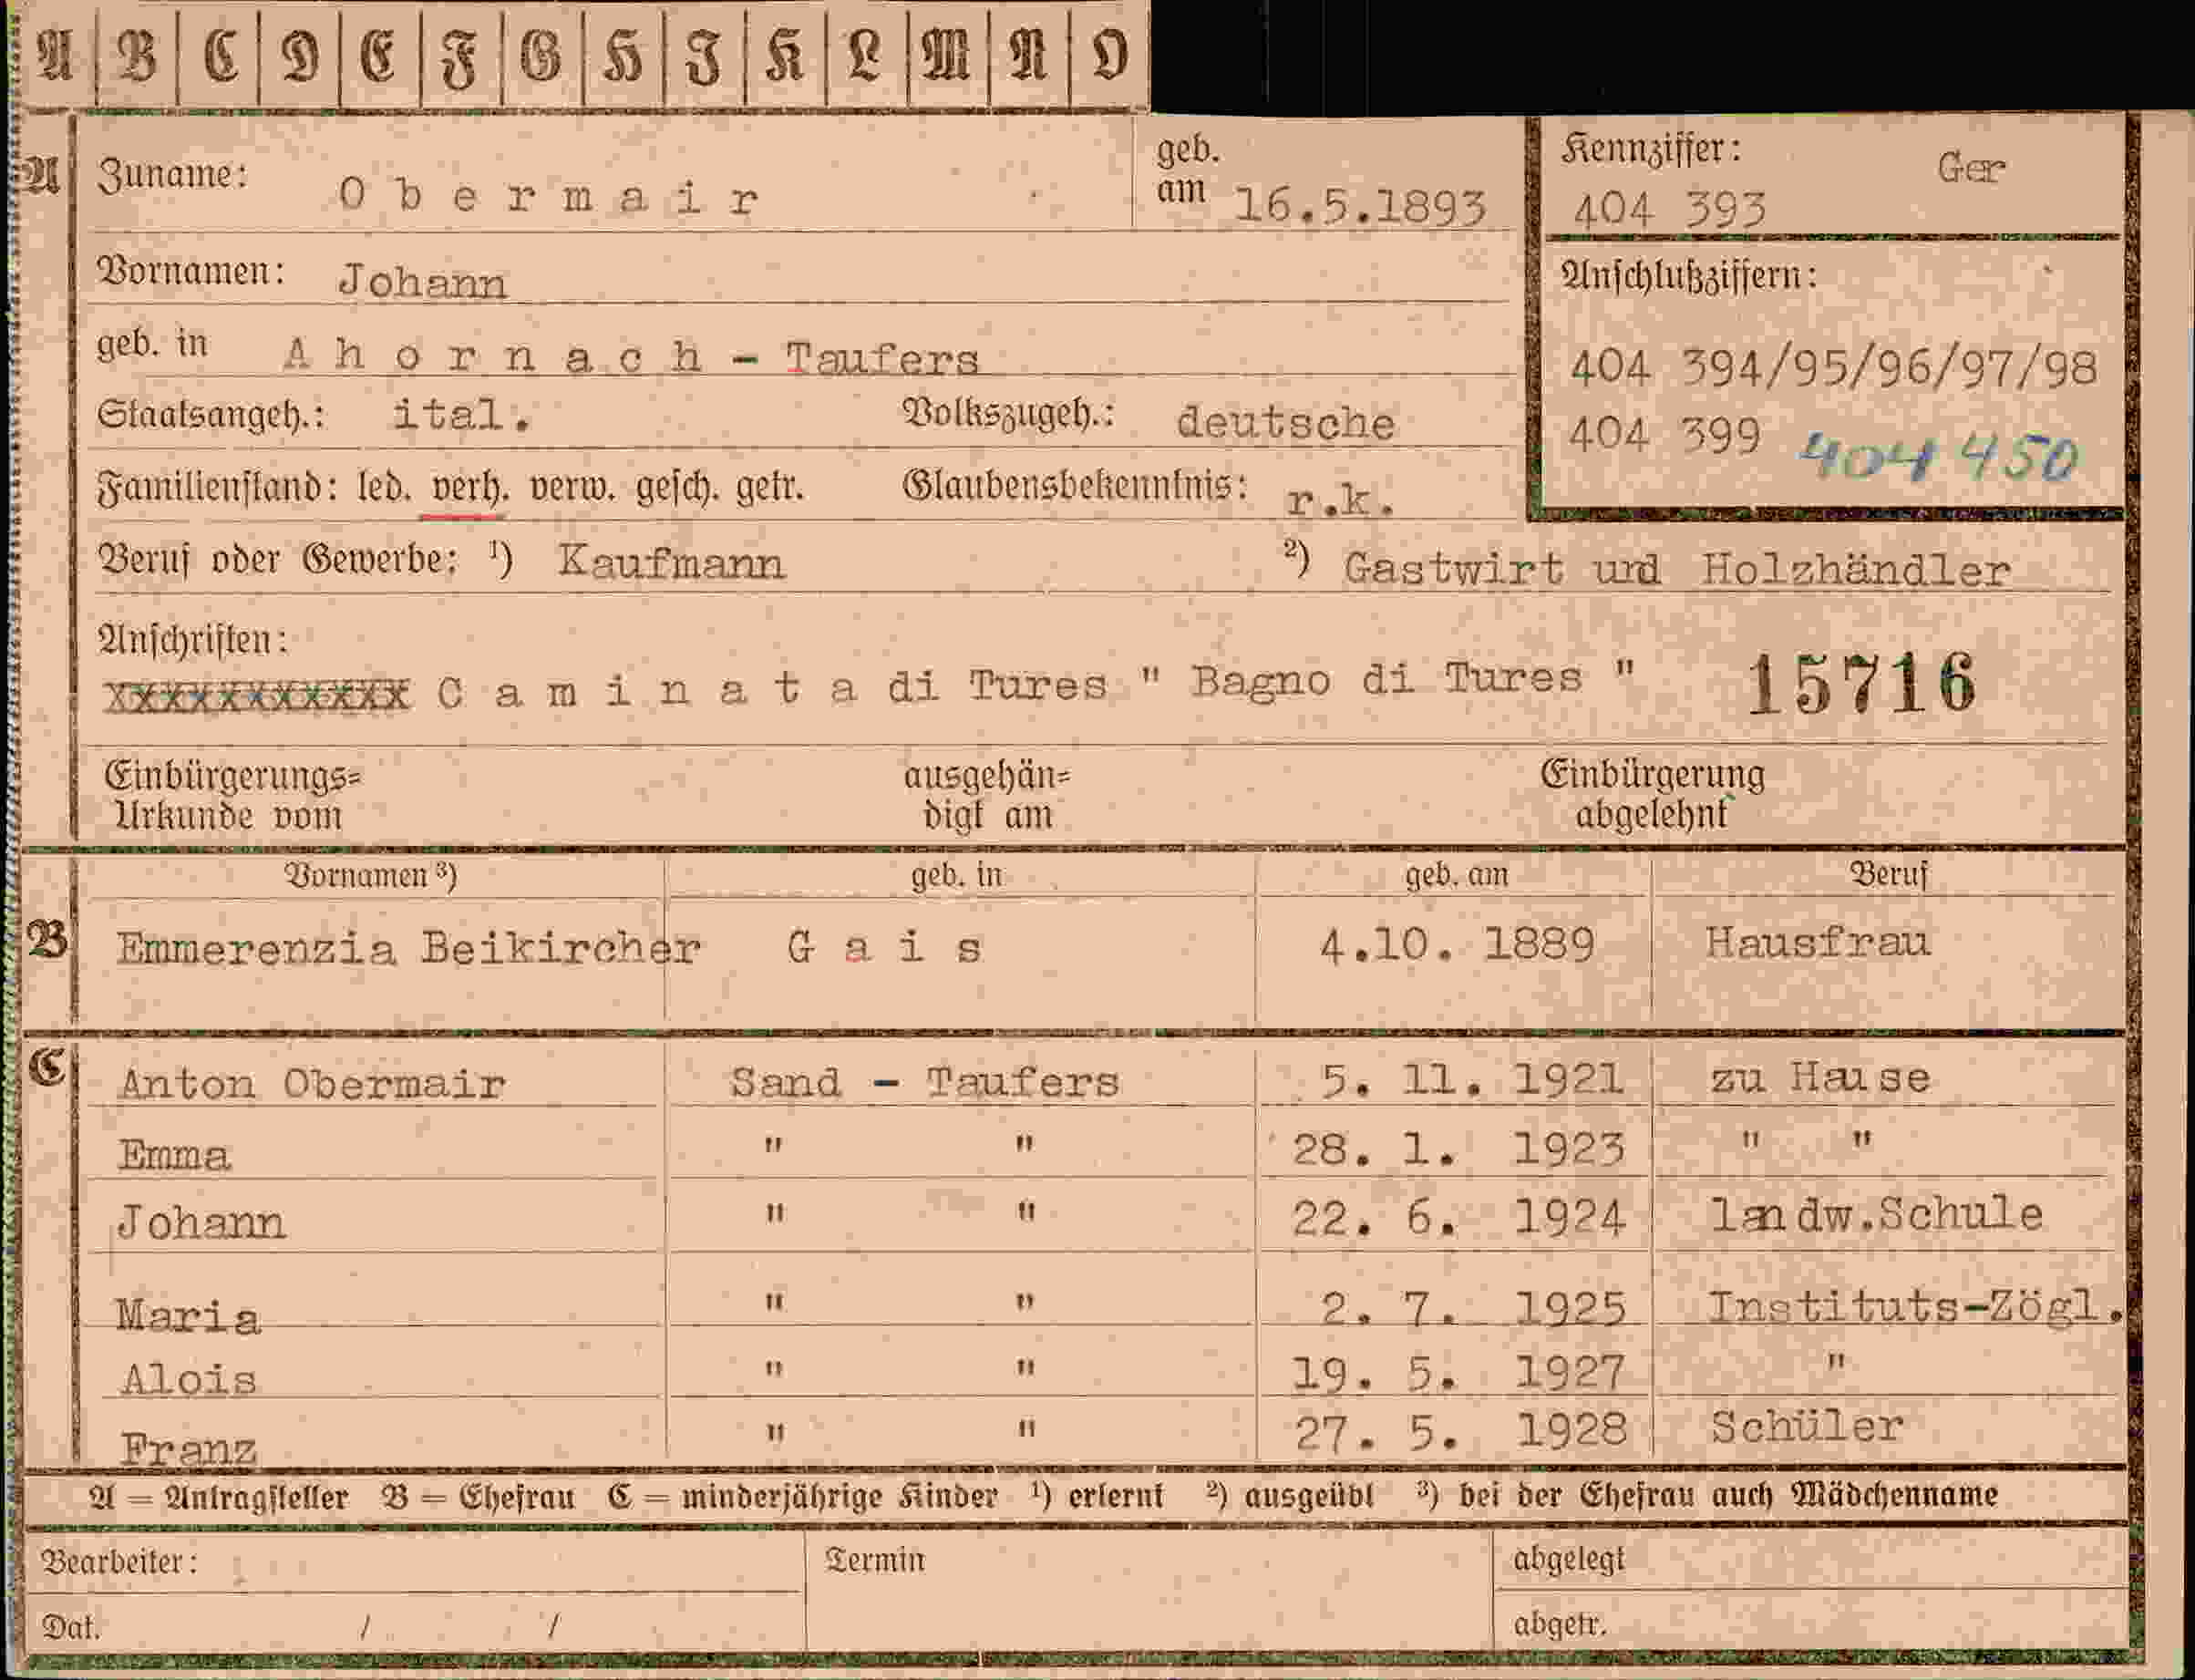 A B C D E F G H I K L M N O
A Zuname: Obermair geb. am 16.5.1893
Kennziffer: Ger
404 393
Vornamen: Johann
Anschlußziffern:
geb. in Ahornach - Taufers
404 394/95/96/97/98
Staatsangeh.: ital. Volkszugeh.: deutsche
404 399 404 450
Familienstand: led. verh. verw. gesch. getr. Glaubensbekenntnis: r.k.
Beruf oder Gewerbe: ¹) Kaufmann ²) Gastwirt und Holzhändler
Anschriften:
xxxxxxxxxxx Caminata di Tures " Bagno di Tures " 15716
Einbürgerungs= ausgehän= Einbürgerung
Urkunde vom digt am abgelehnt
Vornamen ³) geb. in geb. am Beruf
B Emmerenzia Beikircher Gais 4.10. 1889 Hausfrau
C Anton Obermair Sand - Taufers 5. 11. 1921 zu Hause
Emma " " 28. 1. 1923 " "
Johann " " 22. 6. 1924 landw.Schule
Maria " " 2. 7. 1925 Instituts-Zögl.
Alois " " 19. 5. 1927 "
Franz " " 27. 5. 1928 Schüler
A = Antragsteller B = Ehefrau C = minderjährige Kinder ¹) erlernt ²) ausgeübt ³) bei der Ehefrau auch Mädchenname
Bearbeiter: Termin abgelegt
Dat. / / abgetr.